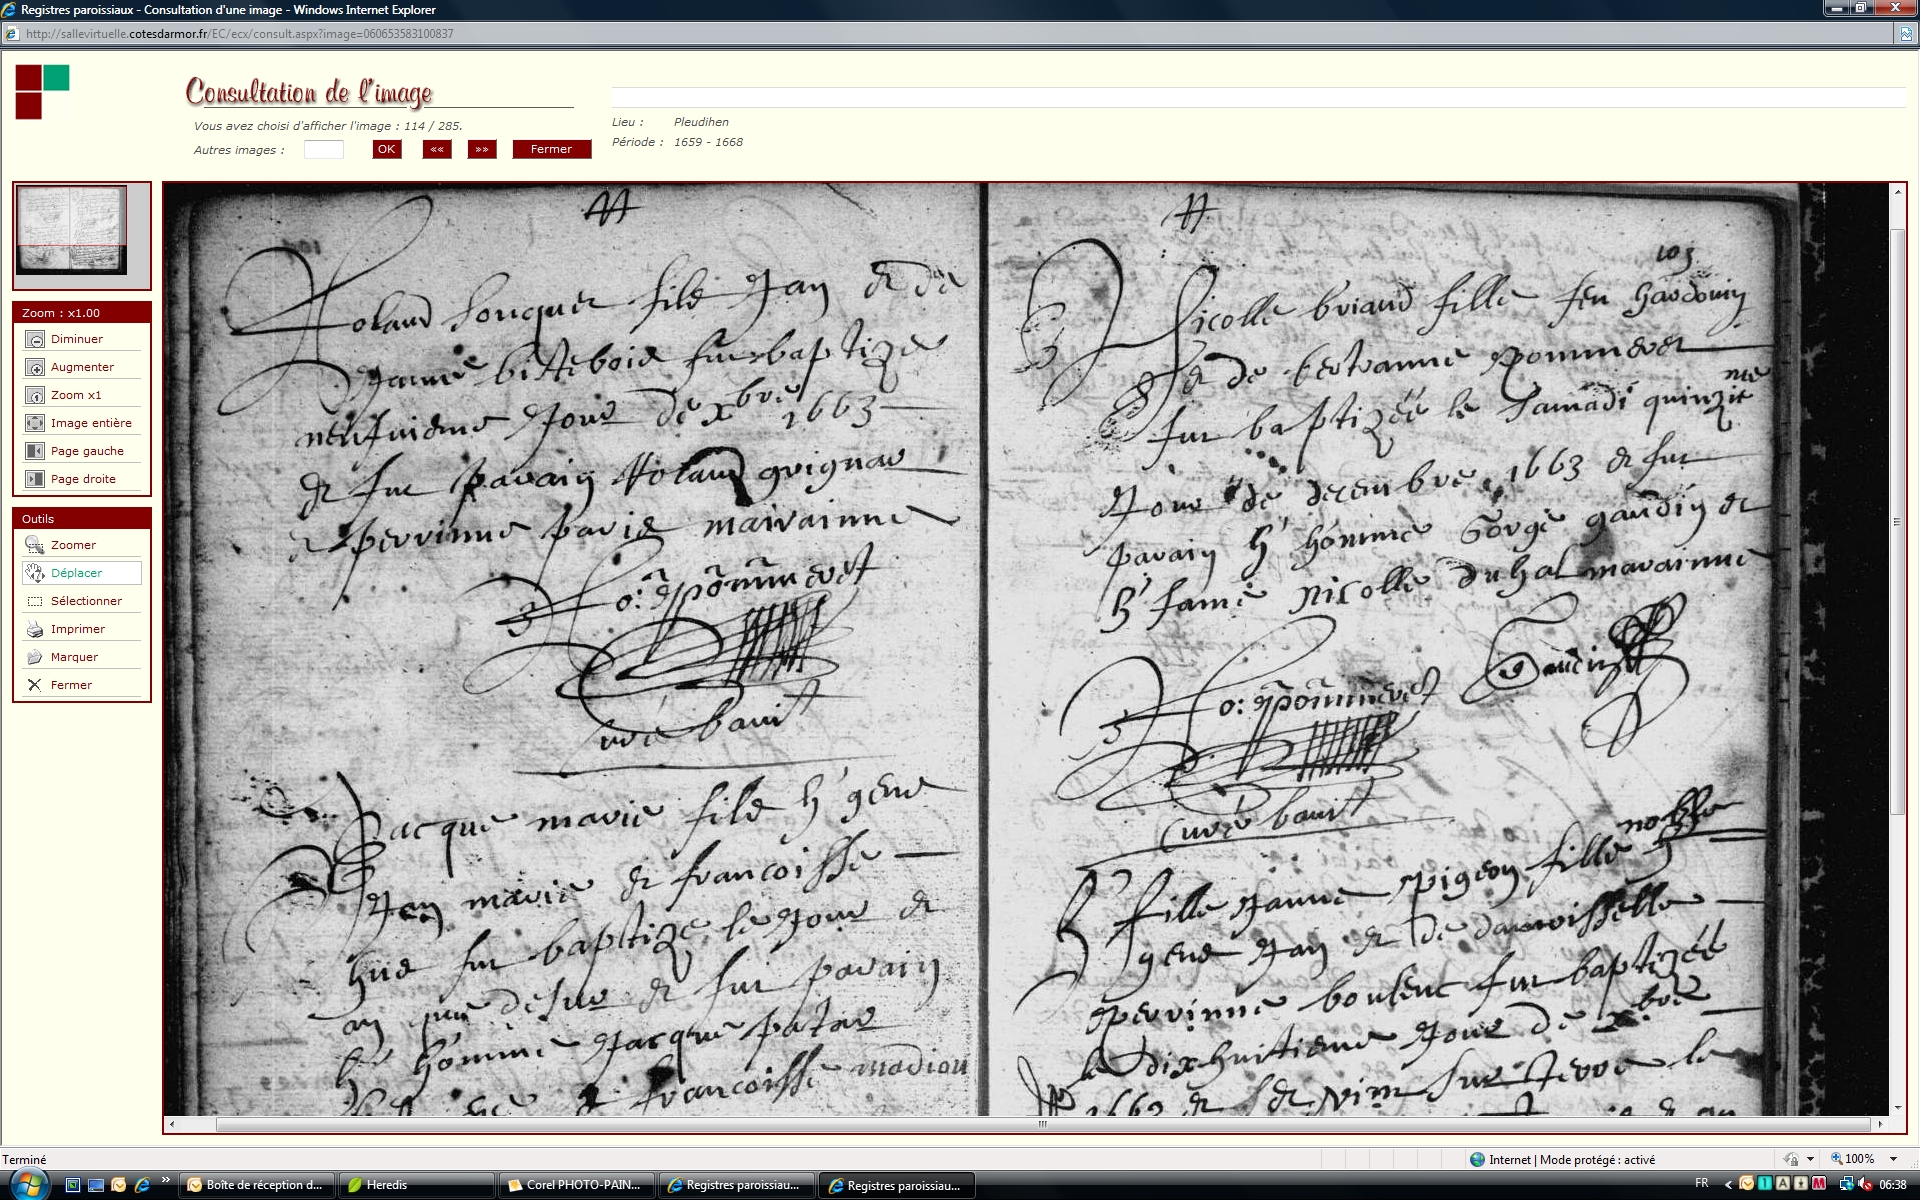 Registres paroissiaux - Consultation d'une image - Windows Internet Explorer
http://sallevirtuelle.cotesdarmor.fr/EC/ecx/consult.aspx?image=060653583100837
Consultation de l'image
Vous avez choisi d'afficher l'image : 114 / 285.
Autres images :
OK
««
»»
Fermer
Lieu : Pleudihen
Période : 1659 - 1668
Zoom : x1.00
Diminuer
Augmenter
Zoom x1
Image entière
Page gauche
Page droite
Outils
Zoomer
Déplacer
Sélectionner
Imprimer
Marquer
Fermer
Roland fouquer fils Jan et de
Janne bistebois fut baptize
neufuieme Jour de xbre 1663
et fut parain Roland grignar
et perrinne paris mairainne
Ro: pommeret
curé baui
Jacque marie fils h gens
Jan marie et francoisse
hus fut baptize le Jour et
an que desus et fut parain
h homme Jacque patar
francoisse madiou
103
Nicolle briand fille feu hardouin
et de bertranne pommeret
fut baptizée le samadi quinzie
me
Jour de decembre 1663 et fut
parain h homme Gorge gaudin et
h fame Nicolle duhal marainne
Gaudin
Ro: pommeret
curé baui
noble
fille Janne pigeon fille
gens Jan et de damoisselle
perrinne boulent fut baptizée
le dixhuitieme Jour de xbre
1663 et fut le
Terminé
Internet | Mode protégé : activé
100%
Boîte de réception d...
Heredis
Corel PHOTO-PAIN...
Registres paroissiau...
Registres paroissiau...
FR
06:38